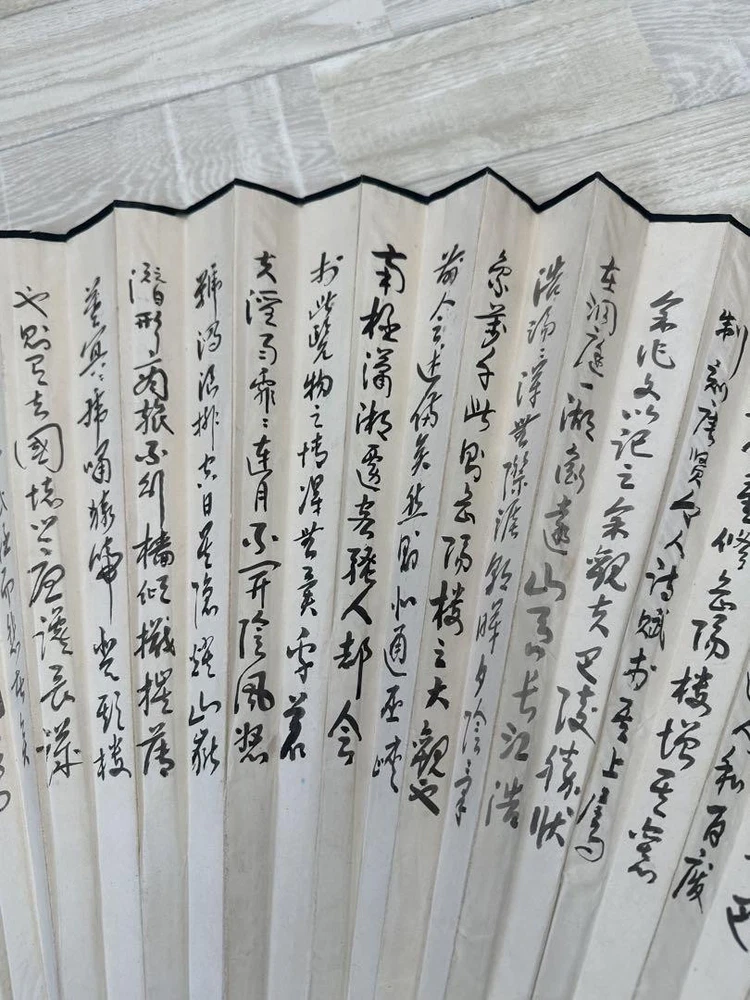 人和百废
重修岳陽楼增其舊
制刻唐賢今人詩賦於其上属
余作文以记之余觀夫巴陵勝狀
在洞庭一湖銜遠山吞长江浩
浩湯々橫無際涯朝暉夕陰氣
象萬千此則岳陽楼之大觀也
前人之述備矣然則北通巫峽
南極瀟湘遷客騷人都会
於此覽物之情得無異乎若
夫淫雨霏々連月不開陰風怒
號濁浪排空日星隱燿山嶽
潛形商旅不行檣傾檝摧薄
暮冥々虎嘯猿啼登斯楼
也則有去國懷鄉憂讒畏譏